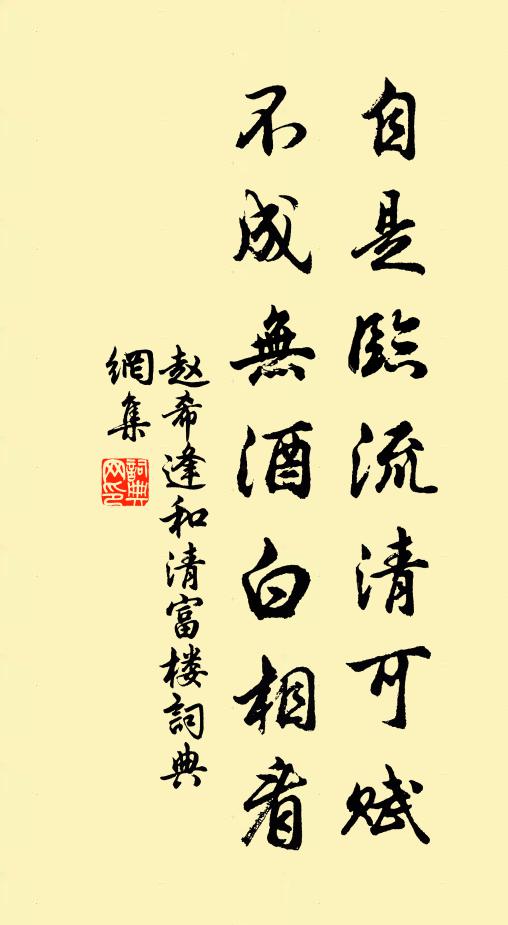 自是臨流清可赋
不成無酒白相看
赵希逢和清富楼詞典
網集
詞典
网印